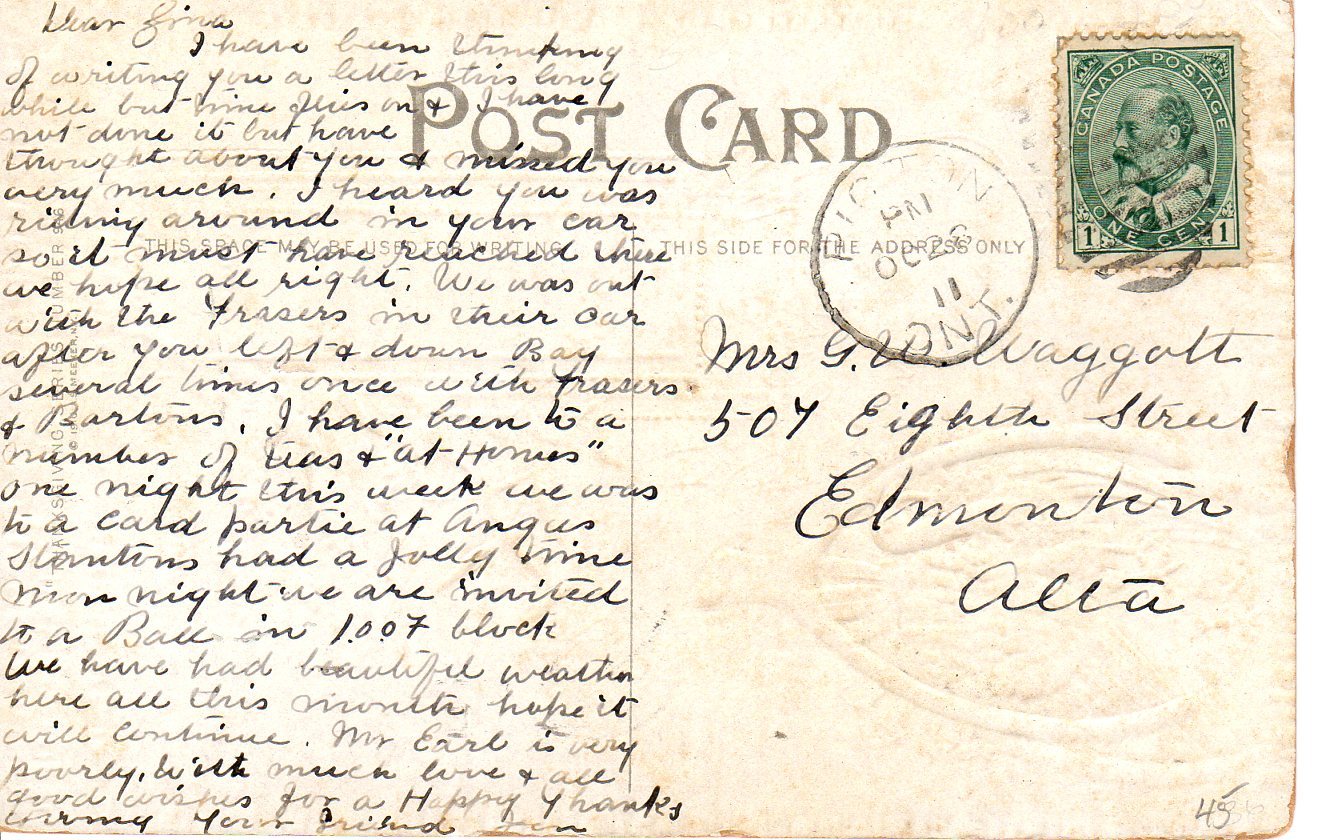 Dear
I have been thinking
of writing you a letter this long
while but time flies on & I have
not done it but have
thought about you & missed you
very much. I heard you was
riding around in your car
so it must have reached there
we hope all right. We was out
with the Frasers in their car
after you left & down Bay
several times once with Frasers
& Bartons. I have been to a
number of teas & "at-Homes"
one night this week we was
to a card partie at Angus
Stantons had a Jolly time
Mon night we are invited
to a Ball in I.O.O.F block
We have had beautiful weather
here all this month hope it
will continue. Mr Earl is very
poorly. With much love & all
good wishes for a Happy Thanks
giving your friend
POST CARD
THIS SPACE MAY BE USED FOR WRITING
THIS SIDE FOR THE ADDRESS ONLY
PICTON
PM
OC 26
11
ONT.
CANADA POSTAGE
1 ONE CENT 1
Mrs G. W. Waggott
507 Eighth Street
Edmonton
Alta
45